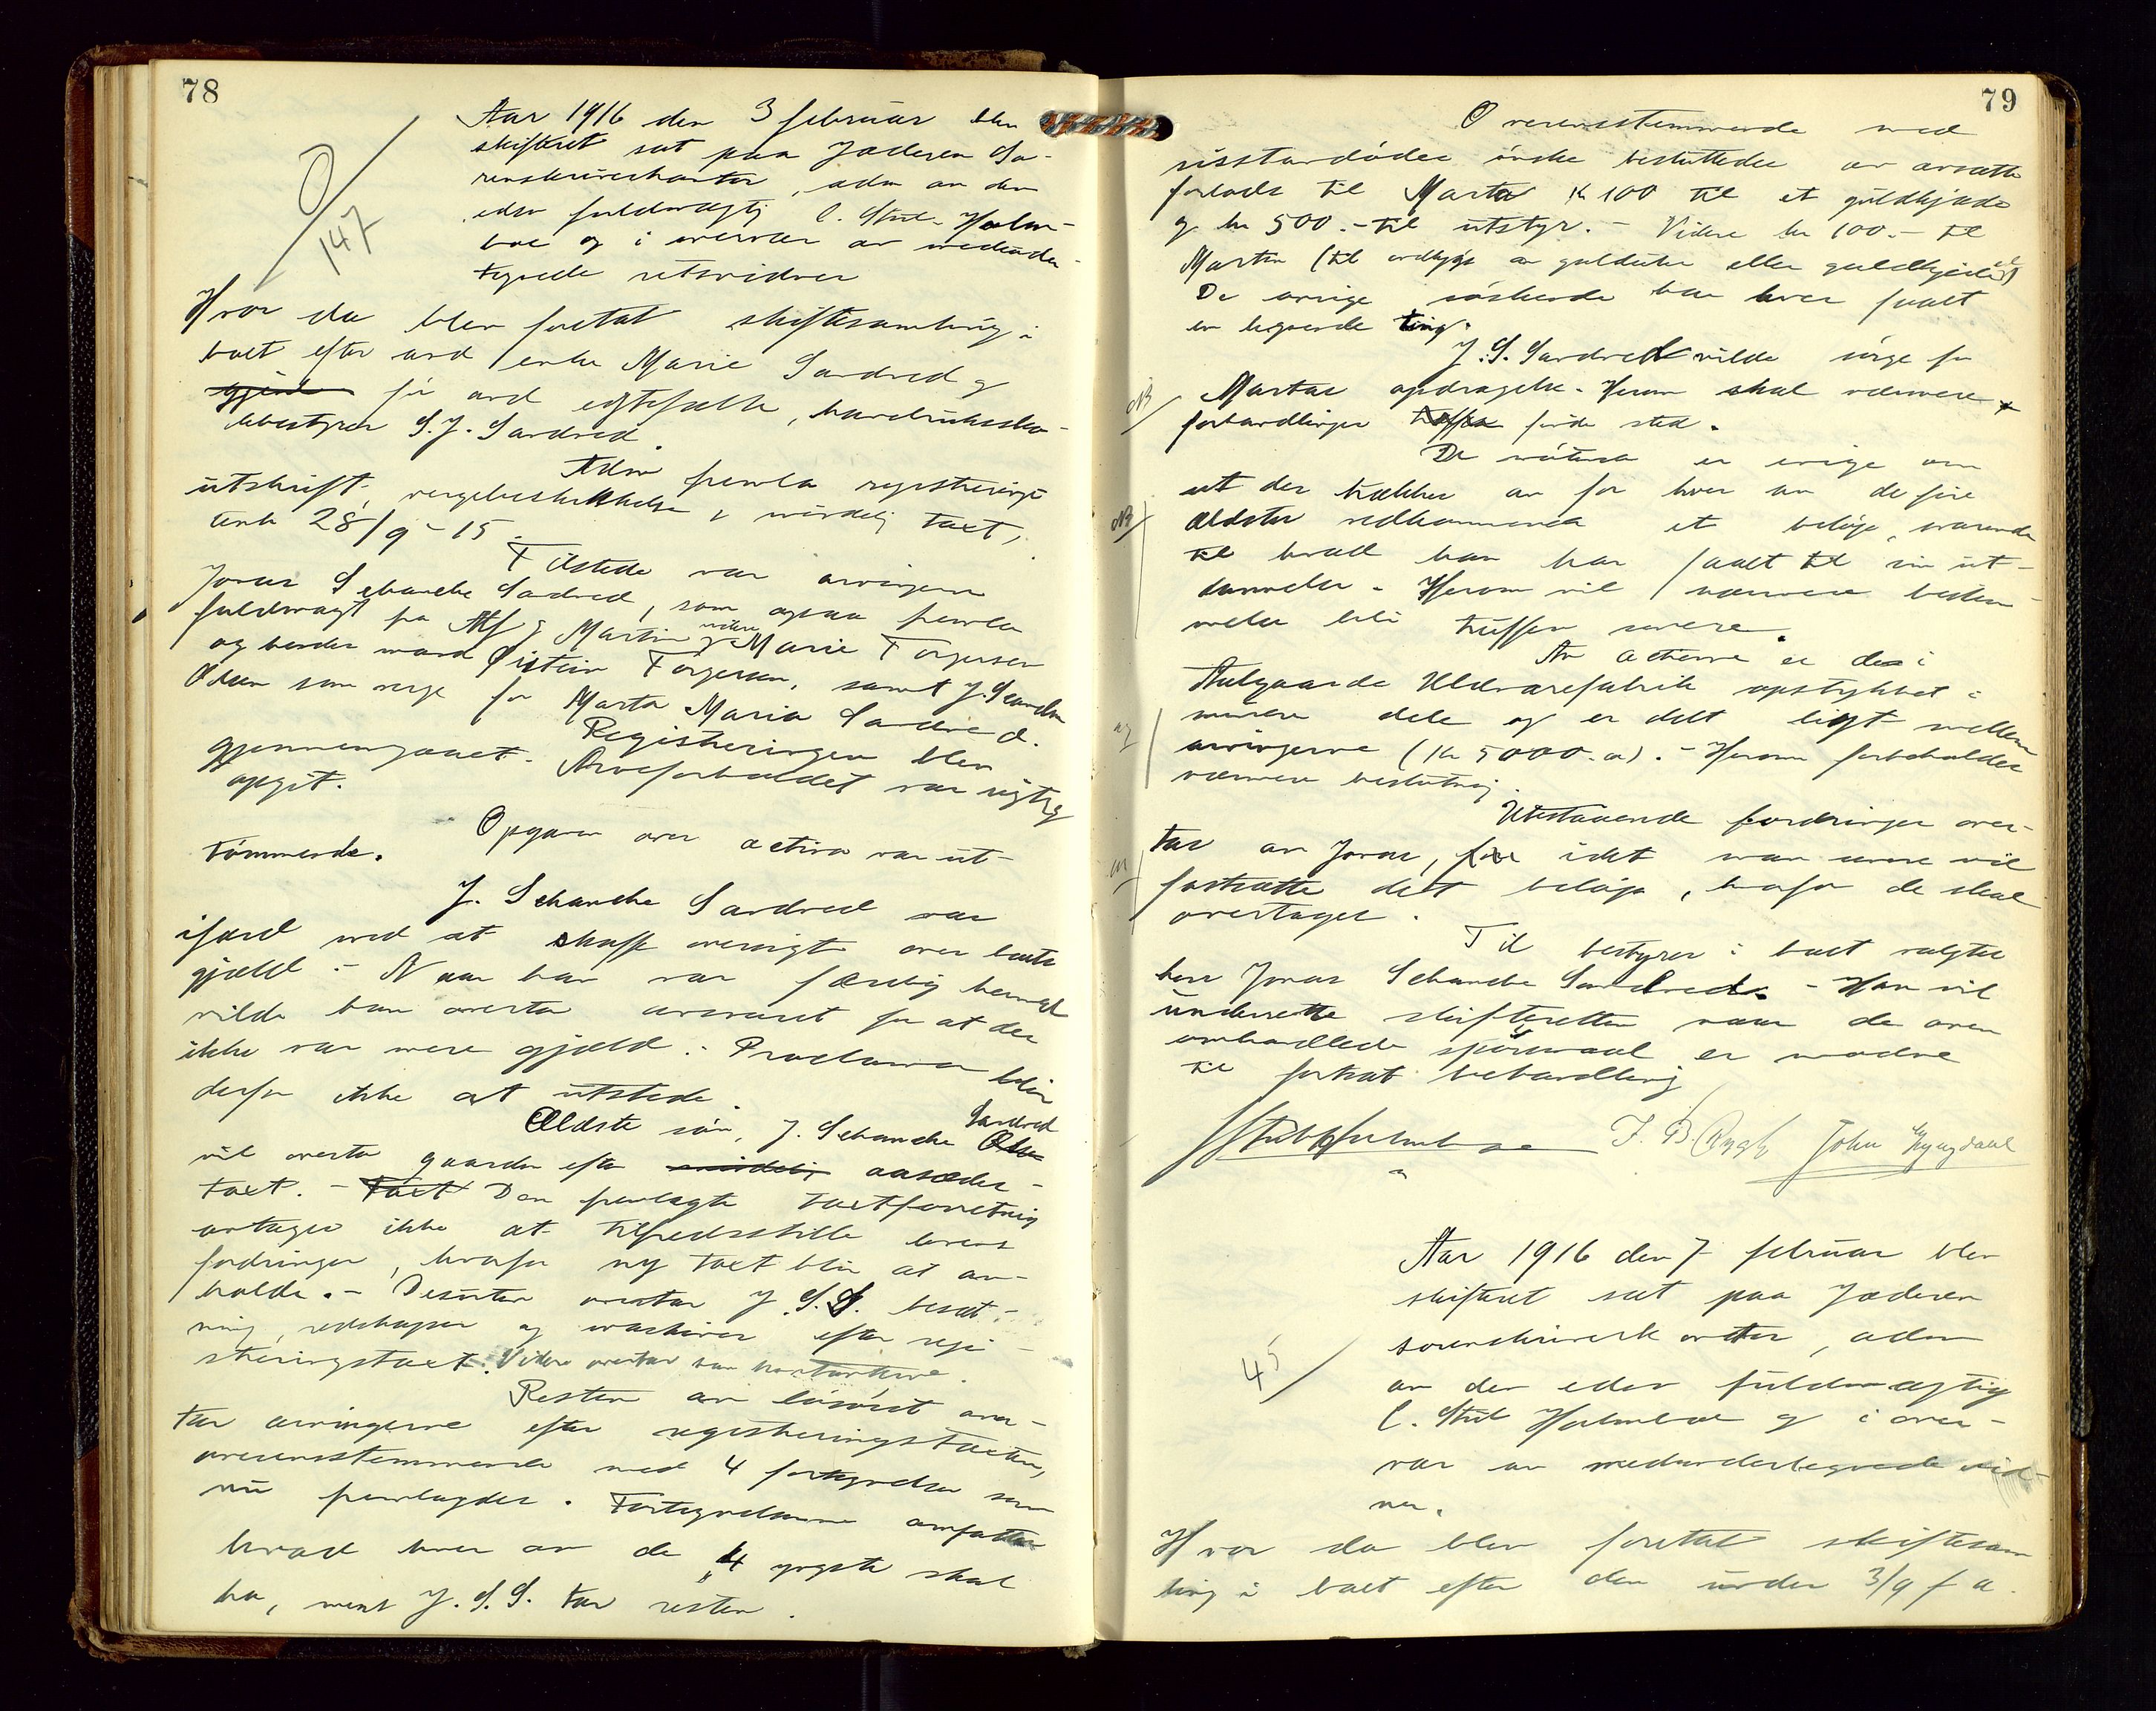 78
Aar 1916 den 3 februar blev
skifteret sat paa Jæderen So-
renskriverkontor, adm av den
edsv fuldmægtig C. Stub Holm-
boe og i overvær av medunder-
tegnede retsvidner
0/147
Hvor da blev foretat skiftesamling i
boet efter avd enke Marie Sandved og
før avd egtefælle, havebruksko-
lebestyrer S. J. Sandved.
Adm fremla registrerings
utskrift, vergebeskikkelse, taxt,
28/9-15.
Tilstede var arvingerne
Jonas Schanche Sandved, som ogsaa fremla
fuldmagt fra Alf og Martin videre Marie Torgersen
og hendes mand Øistein Torgersen, samt J. Schanche
Olsen som verge for Marta Maria Sandved.
Registreringen blev
gjennemgaaet. Arveforholdet var rigtig
opgit.
Opgaven over activa var ut-
tømmende.
J. Schanche Sandved var
ifærd med at skaffe oversigt over boets
gjæld. - Naar han var færdig hermed
vilde han overta ansvaret for at der
ikke var mere gjæld. - Proclama blir
derfor ikke at utstede.
Ældste søn, J. Schanche Sandved
vil overta gaarden efter aasædes-
taxt. - Den fremlagte taxtforretning
antages ikke at tilfredsstille lovens
fordringer, hvorfor ny taxt blir at av-
holde. - Desuten overtar J S. S. besæt-
ning, redskaper og maskiner efter regi-
streringstaxt. Videre overtar han
Resten av løsøret over-
tar arvingerne efter registreringstaxten,
overensstemmende med 4 fortegnelser som
nu fremlagdes. Fortegnelserne omfatter
hvad hver av de 4 yngste skal
ha, mens J. S. S. tar resten.
79
Overensstemmende med
sisstavdødes ønske besluttedes at avsætte
forlods til Marta kr 100 til et guldkjæde
og kr 500.- til utstyr. - Videre kr 100.- til
Martin (til indkjøp av guldur eller guldkjæde)
De øvrige søskende har hver faaet
en lignende ting.
J. S. Sandved vilde sørge for
NB
Martas opdragelse. Herom skal nærmere
forhandlinger finde sted.
De møtende er enige om
NB
at der trækkes av for hver av de fire
ældste vedkommende et beløp, svarende
til hvad han har faaet til sin ut-
dannelse. Herom vil nærmere bestem-
melse bli truffen senere.
Av actierne er de i
Aalgaards Uldvarefabrik opstykket i
mindre dele og er delt ligt mellem
arvingerne (kr 5000.- a). - Herom forbeholdes
nærmere beslutning.
Utestaaende fordringer over-
tas av Jonas, idet man senere vil
fastsætte det beløp, hvorfor de skal
overtages.
Til bestyrer i boet valgtes
herr Jonas Schanche Sandved. - Han vil
underrette skifteretten naar de oven
omhandlede spørsmaal er modne
til fortsat behandling
CStubHolmboe J. B. Rygh John Lyngdaal
Aar 1916 den 7 februar blev
skifteret sat paa Jæderen
sorenskriverkontor, adm
av den edsv fuldmægtig
C. Stub Holmboe og i over-
vær av medundertegnede vid-
ner.
45
Hvor da blev foretat skiftesam
ling i boet efter den under 3/9 f a.